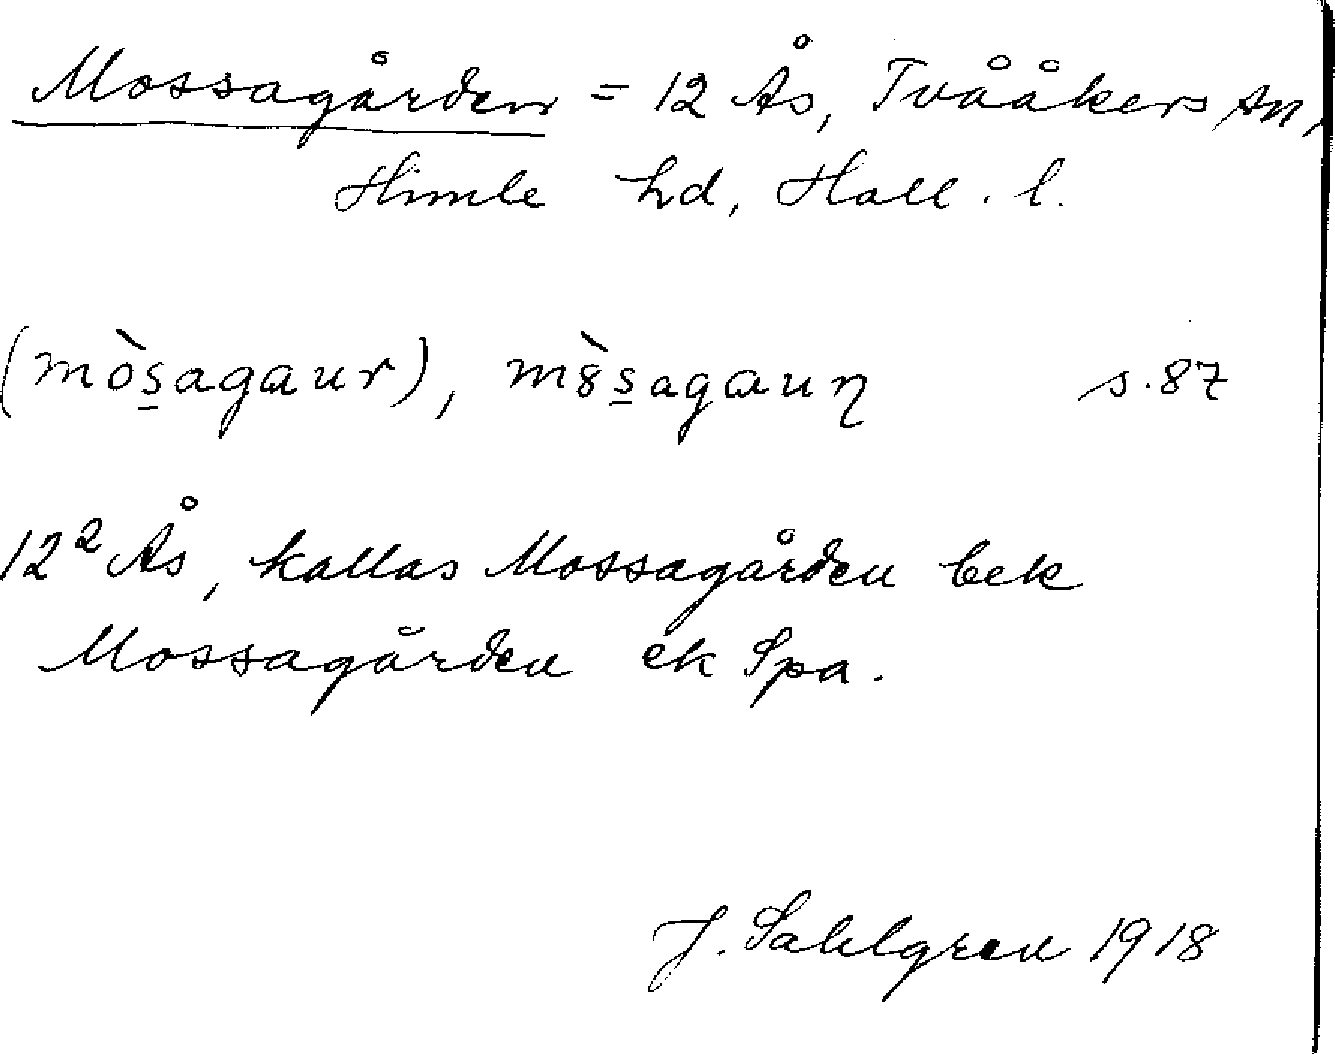 Mossagården = 12 Ås, Tvååkers sn,
Himle hd, Hall. l.
(mòs̲agaur), m8̀s̲agauɳ s. 87
12² Ås, kallas Mossagården bek
Mossagården ek Spa.
J. Sahlgren 1918